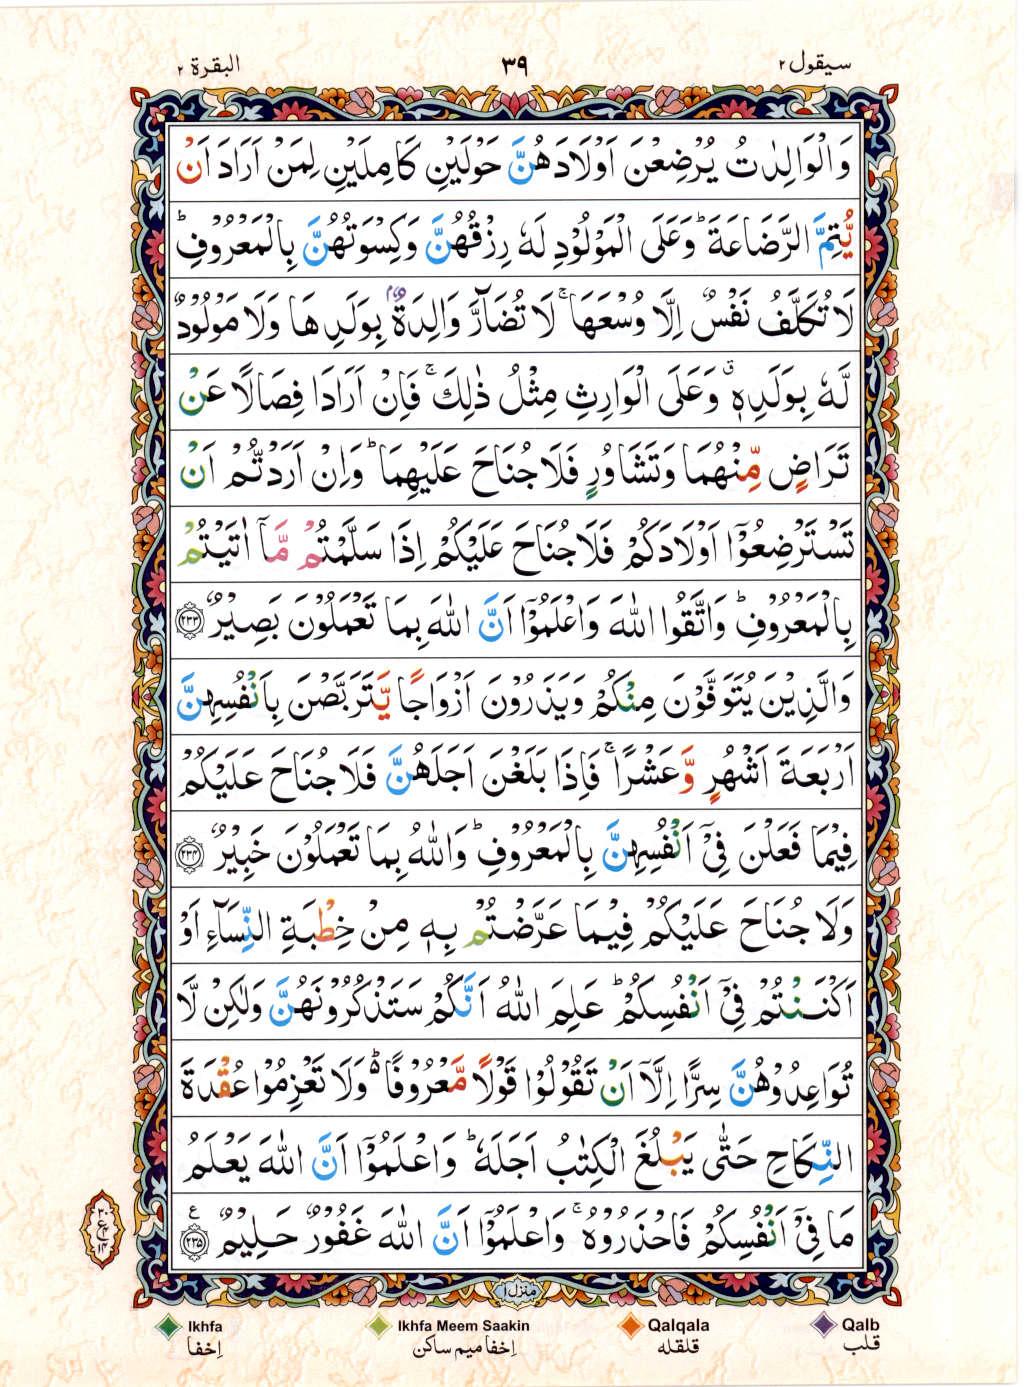 سيقول ٢
٣٩
البقرة ٢
وَالْوَالِدٰتُ يُرْضِعْنَ اَوْلَادَهُنَّ حَوْلَيْنِ كَامِلَيْنِ لِمَنْ اَرَادَ اَنْ
يُّتِمَّ الرَّضَاعَةَ ؕ وَعَلَى الْمَوْلُوْدِ لَهٗ رِزْقُهُنَّ وَكِسْوَتُهُنَّ بِالْمَعْرُوْفِ ؕ
لَا تُكَلَّفُ نَفْسٌ اِلَّا وُسْعَهَا ۚ لَا تُضَآرَّ وَالِدَةٌۢ بِوَلَدِهَا وَلَا مَوْلُوْدٌ
لَّهٗ بِوَلَدِهٖ ۗ وَعَلَى الْوَارِثِ مِثْلُ ذٰلِكَ ۚ فَاِنْ اَرَادَا فِصَالًا عَنْ
تَرَاضٍ مِّنْهُمَا وَتَشَاوُرٍ فَلَا جُنَاحَ عَلَيْهِمَا ؕ وَاِنْ اَرَدْتُّمْ اَنْ
تَسْتَرْضِعُوْۤا اَوْلَادَكُمْ فَلَا جُنَاحَ عَلَيْكُمْ اِذَا سَلَّمْتُمْ مَّاۤ اٰتَيْتُمْ
بِالْمَعْرُوْفِ ؕ وَاتَّقُوا اللّٰهَ وَاعْلَمُوْۤا اَنَّ اللّٰهَ بِمَا تَعْمَلُوْنَ بَصِيْرٌ ﴿٢٣٣﴾
وَالَّذِيْنَ يُتَوَفَّوْنَ مِنْكُمْ وَيَذَرُوْنَ اَزْوَاجًا يَّتَرَبَّصْنَ بِاَنْفُسِهِنَّ
اَرْبَعَةَ اَشْهُرٍ وَّعَشْرًا ۚ فَاِذَا بَلَغْنَ اَجَلَهُنَّ فَلَا جُنَاحَ عَلَيْكُمْ
فِيْمَا فَعَلْنَ فِيْۤ اَنْفُسِهِنَّ بِالْمَعْرُوْفِ ؕ وَاللّٰهُ بِمَا تَعْمَلُوْنَ خَبِيْرٌ ﴿٢٣٤﴾
وَلَا جُنَاحَ عَلَيْكُمْ فِيْمَا عَرَّضْتُمْ بِهٖ مِنْ خِطْبَةِ النِّسَآءِ اَوْ
اَكْنَنْتُمْ فِيْۤ اَنْفُسِكُمْ ؕ عَلِمَ اللّٰهُ اَنَّكُمْ سَتَذْكُرُوْنَهُنَّ وَلٰكِنْ لَّا
تُوَاعِدُوْهُنَّ سِرًّا اِلَّاۤ اَنْ تَقُوْلُوْا قَوْلًا مَّعْرُوْفًا ؕ وَلَا تَعْزِمُوْا عُقْدَةَ
النِّكَاحِ حَتّٰى يَبْلُغَ الْكِتٰبُ اَجَلَهٗ ؕ وَاعْلَمُوْۤا اَنَّ اللّٰهَ يَعْلَمُ
مَا فِيْۤ اَنْفُسِكُمْ فَاحْذَرُوْهُ ۚ وَاعْلَمُوْۤا اَنَّ اللّٰهَ غَفُوْرٌ حَلِيْمٌ ﴿٢٣٥﴾ ع
٣٠
ع
١٤
منزل ١
Ikhfa Ikhfa Meem Saakin Qalqala Qalb
إخفا إخفا ميم ساكن قلقله قلب